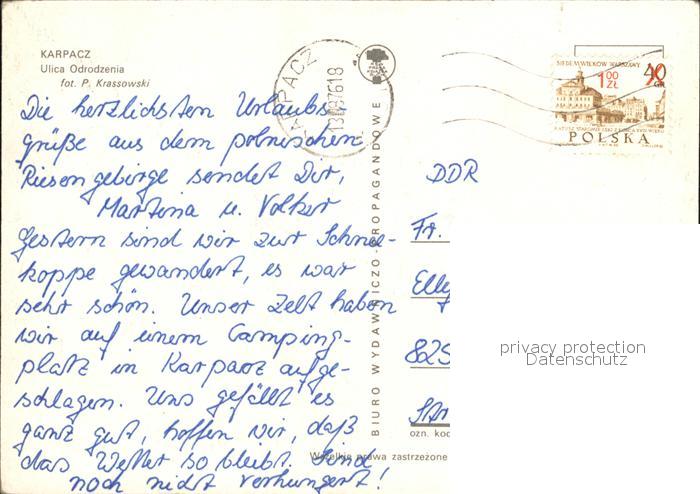 KARPACZ
Ulica Odrodzenia
fot. P. Krassowski
Die herzlichsten Urlaubs-
grüße aus dem polnischen
Riesengebirge sendet Dir,
Martina u. Volker
Gestern sind wir zur Schnee-
koppe gewandert, es war
sehr schön. Unser Zelt haben
wir auf einem Camping-
platz in Karpacz aufge-
schlagen. Uns gefällt es
ganz gut, hoffen wir, daß
das Wetter so bleibt. Sind
noch nicht verhungert!
BIURO WYDAWNICZO-PROPAGANDOWE
Wszelkie prawa zastrzeżone
KARPACZ
SIEDEM WIEKÓW WARSZAWY
1 00 ZŁ
40 GR
POLSKA
DDR
Fr.
Elly
825
ozn. kod
privacy protection
Datenschutz